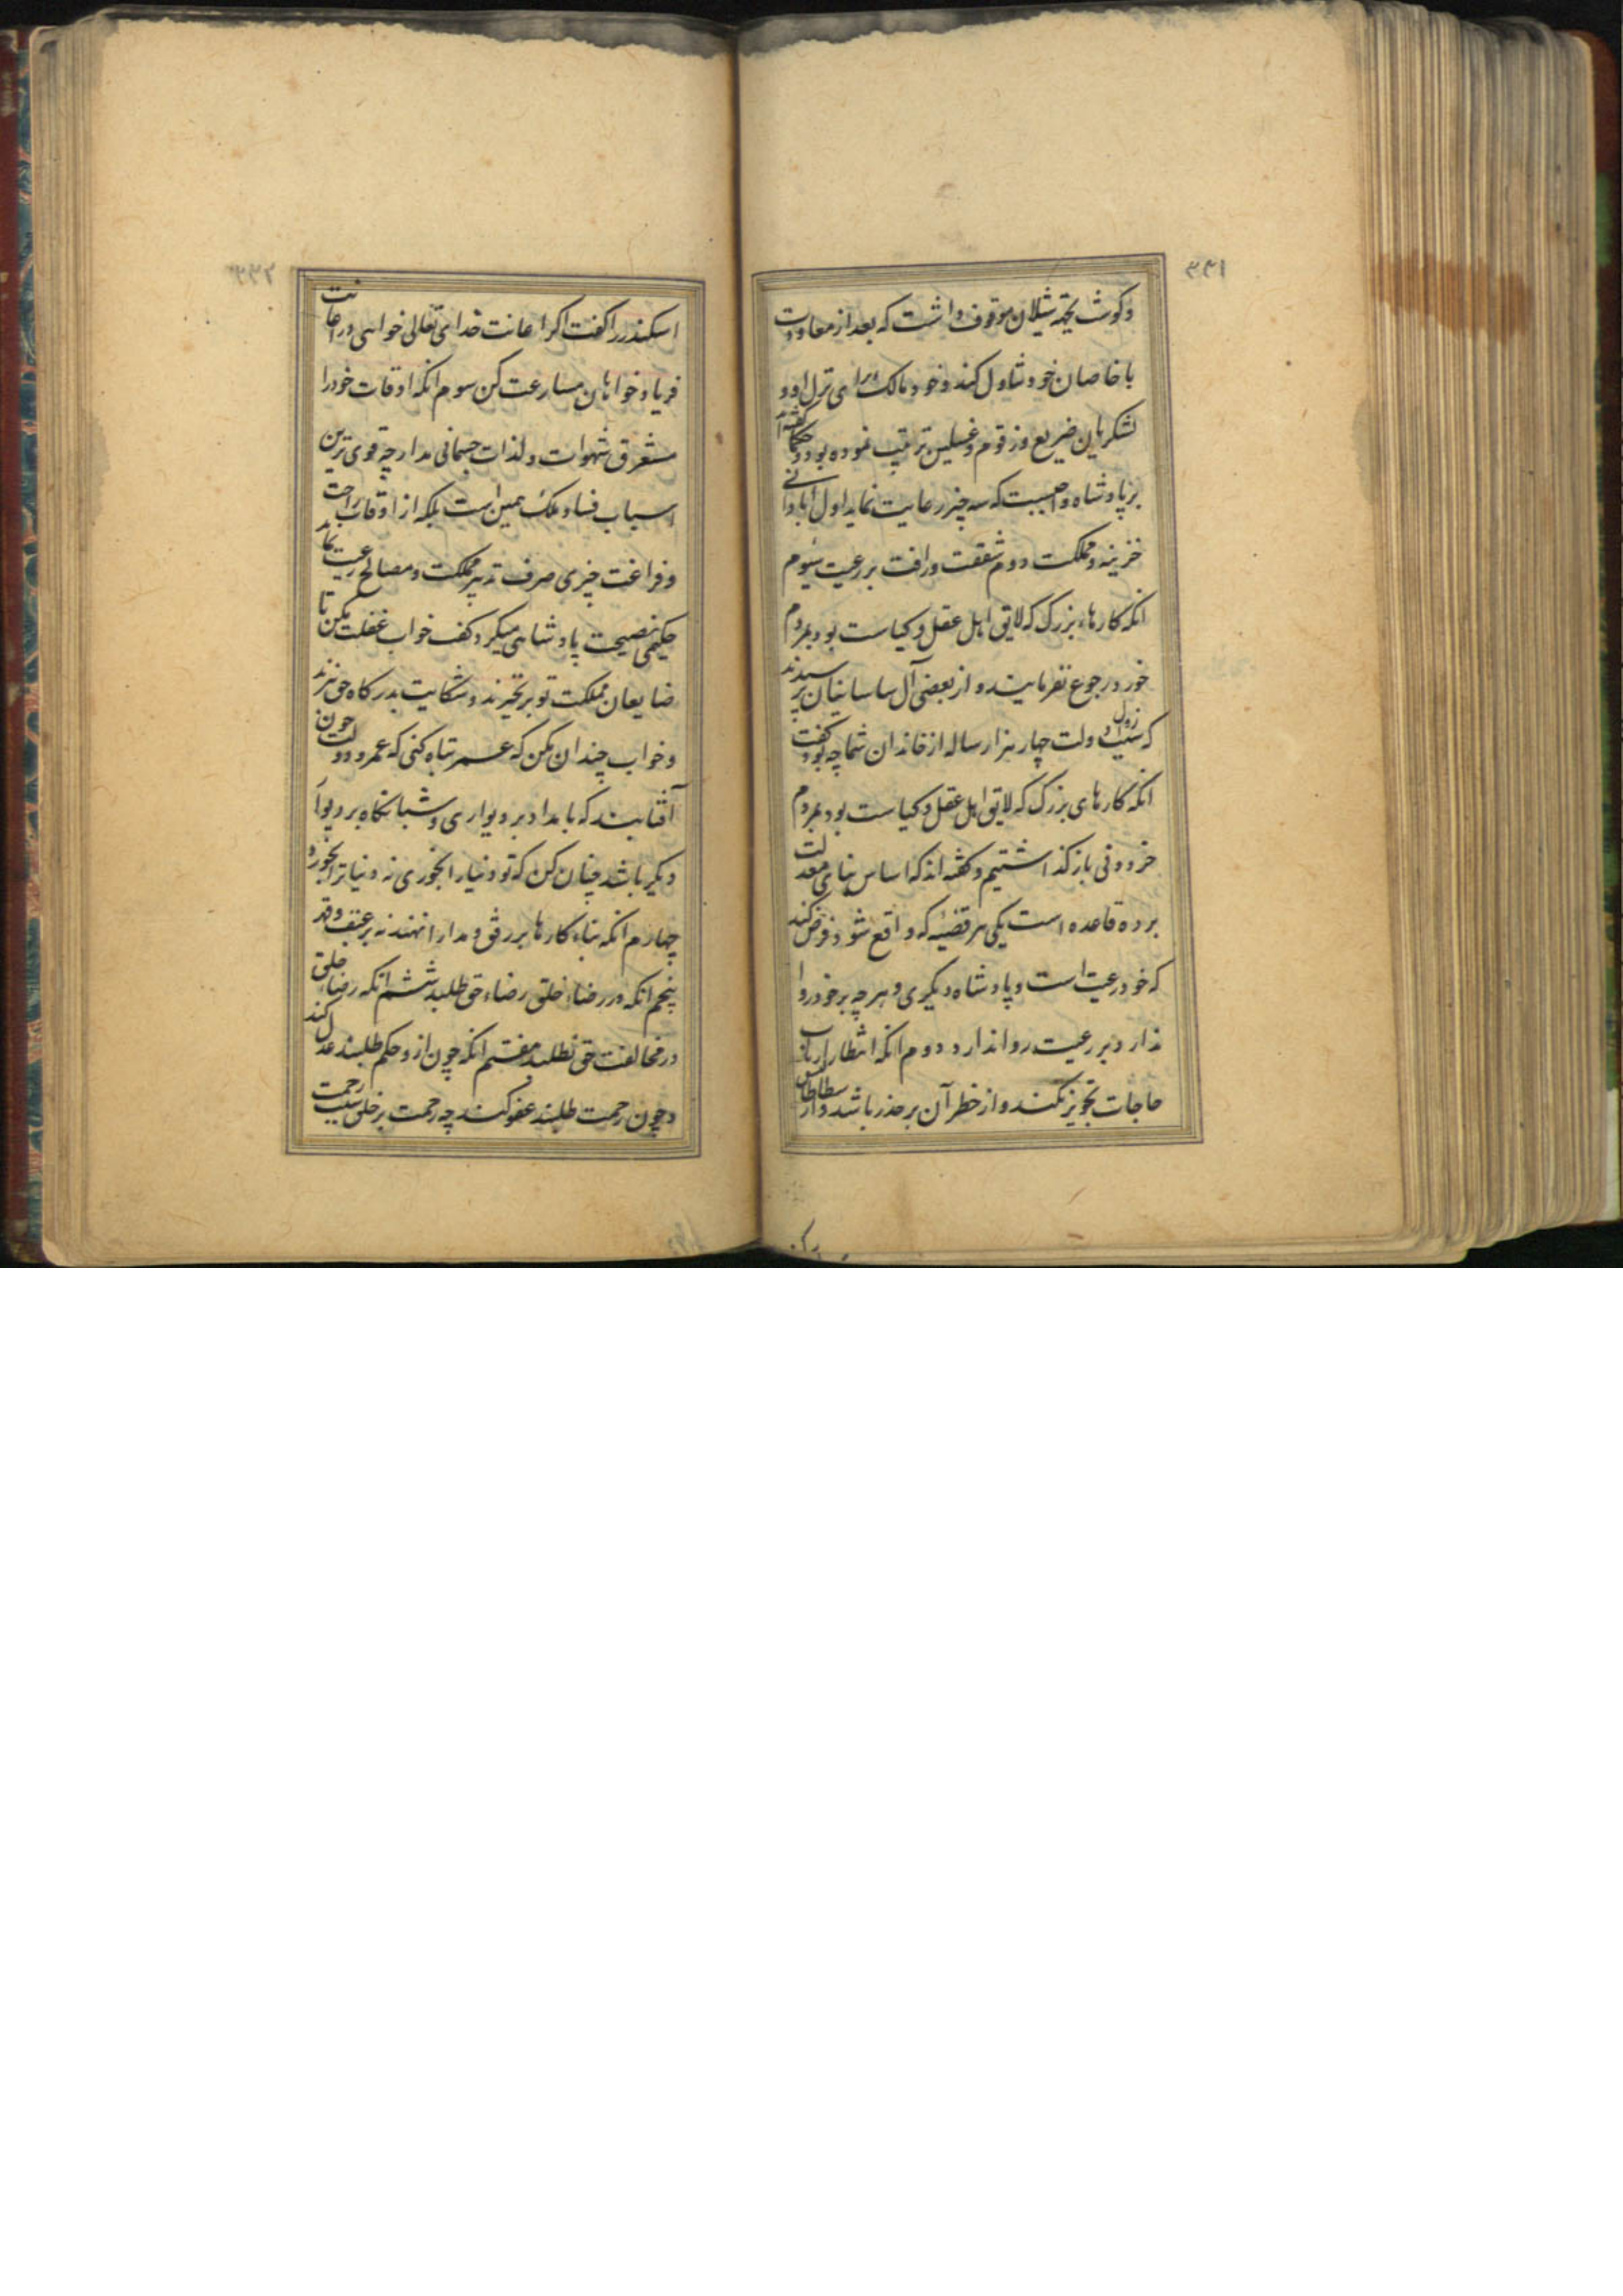 ۳۳۱
و گوشت بجهة شیلان موقوف داشت که بعد از معاودت
با خاصان خود تناول کند و خود مالک برای نزل او و
لشکریان ضریع و زقوم و غسلین ترتیب نموده بود و حکما گفته‌اند
بر پادشاه واجبست که سه چیز رعایت نماید اول آبادانی
خزینه و مملکت دوم شفقت و رافت بر رعیت سیوم
انکه کارهاء بزرگ که لایق اهل عقل و کیاست بود بمردم
خورد رجوع نفرمایند و از بعضی آل ساسانیان پرسیدند
که سبب زوال دولت چهار هزار ساله از خاندان شما چه بود گفت
انکه کارهای بزرگ که لایق اهل عقل و کیاست بود بمردم
خرد ودنی باز گذاشتیم و گفته‌اند که اساس بنای معدلت
بر ده قاعده است یکی هر قضیه که واقع شود فرض کند
که خود رعیت است و پادشاه دیگری و هر چه بر خود روا
ندارد بر رعیت روا ندارد دوم انکه انتظار ارباب
حاجات تجویز نکند و از خطر آن بر حذر باشد و ارسطاطالیس
۳۳۲
اسکندر را گفت اگر اعانت خدای تعالی خواهی در اعانت
فریاد خواهان مسارعت کن سوم انکه اوقات خود را
مستغرق شهوات و لذات جسمانی مدار چه قوی ترین
اسباب فساد ملک همین است بلکه از اوقات راحت
و فراغت چیزی صرف تدبیر مملکت و مصالح رعیت نماید
حکیمی نصیحت پادشاهی میکرد گفت خواب غفلت مکن تا
ضایعان مملکت تو برنخیزند و شکایت بدرگاه حق نبرند
و خواب چندان مکن که عمر تباه کنی که عمر و دولت چون
آفتابیند که بامداد بر دیواری و شبانگاه بر دیوار
دیگر باشد چنان کن که تو دنیا را بخوری نه دنیا ترا بخورد
چهارم انکه بناء کارها بر رفق و مدارا نهند نه بر عنف و قهر
پنجم انکه در رضاء خلق رضاء حق طلبد ششم انکه رضاء خلق
در مخالفت حق نطلبد هفتم انکه چون از و حکم طلبند عدل کند
و چون رحمت طلبند عفو کند چه رحمت بر خلق سبب رحمت